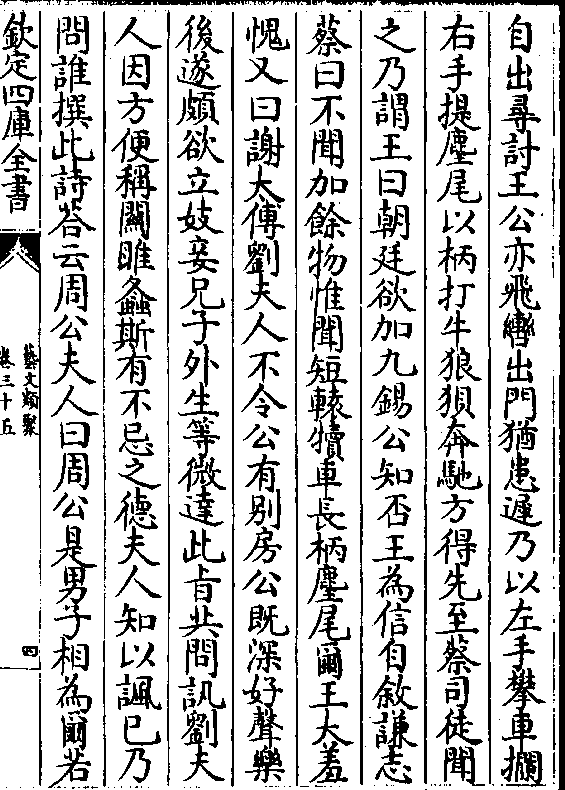 自出尋討王公亦飛轡出門猶患遲乃以左手攀車攔
右手提麈尾以柄打牛狼狽奔馳方得先至蔡司徒聞
之乃謂王曰朝廷欲加九錫公知否王為信自敘謙志
蔡曰不聞加餘物惟聞短轅犢車長柄麈尾爾王大羞
愧又曰謝太傅劉夫人不令公有別房公既深好聲樂
後遂頗欲立妓妾兄子外生等微達此旨共問訊劉夫
人因方便稱關雎螽斯有不忌之德夫人知以諷已乃
問誰撰此詩荅云周公夫人曰周公是男子相為爾若
欽定四庫全書
藝文類聚
卷三十五
四